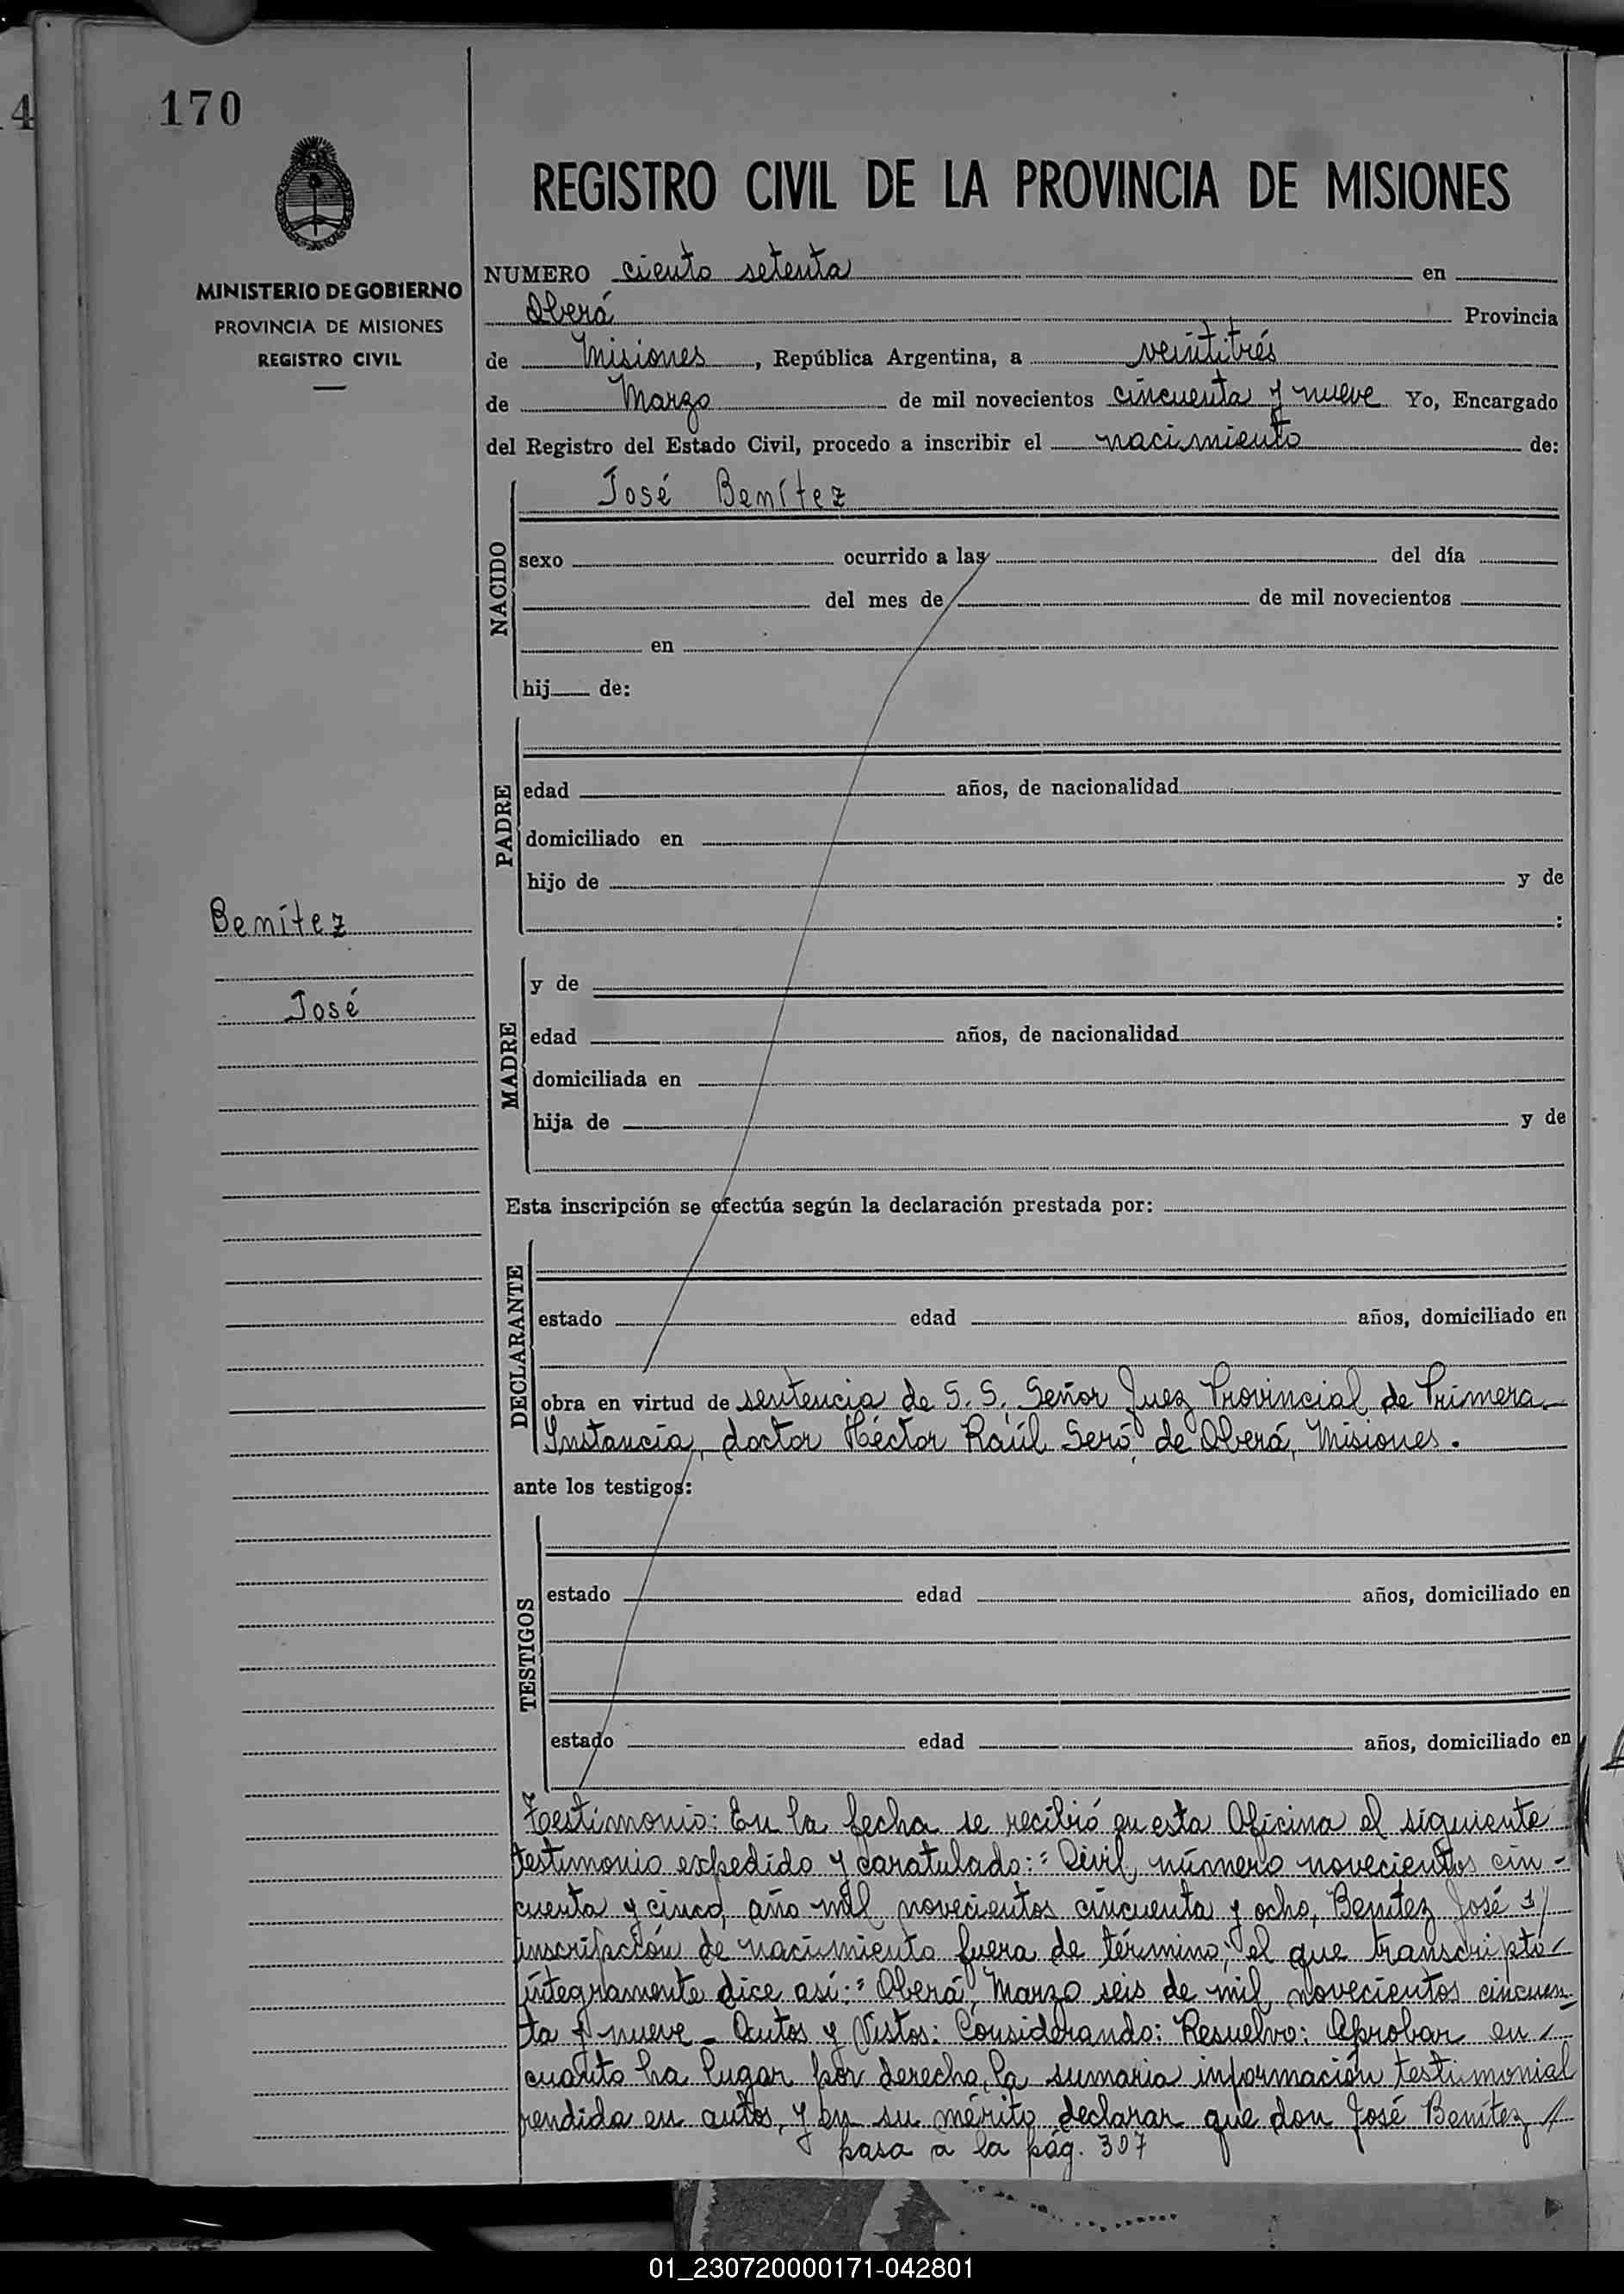 4
170
REGISTRO CIVIL DE LA PROVINCIA DE MISIONES
MINISTERIO DE GOBIERNO
PROVINCIA DE MISIONES
REGISTRO CIVIL
NUMERO ciento setenta en
Oberá Provincia
de Misiones, República Argentina, a veintitrés
de Marzo de mil novecientos cincuenta y nueve Yo, Encargado
del Registro del Estado Civil, procedo a inscribir el nacimiento de:
José Benítez
NACIDO
sexo ocurrido a las del día
del mes de de mil novecientos
en
hij de:
PADRE
edad años, de nacionalidad
domiciliado en
hijo de y de
:
Benítez
José
MADRE
y de
edad años, de nacionalidad
domiciliada en
hija de y de
Esta inscripción se efectúa según la declaración prestada por:
DECLARANTE
estado edad años, domiciliado en
obra en virtud de sentencia de S. S. Señor Juez Provincial de Primera
Instancia, doctor Héctor Raúl Seró de Oberá, Misiones.
ante los testigos:
TESTIGOS
estado edad años, domiciliado en
estado edad años, domiciliado en
Testimonio: En la fecha se recibió en esta Oficina el siguiente
testimonio expedido y caratulado: "Civil, número novecientos cin-
cuenta y cinco, año mil novecientos cincuenta y ocho, Benitez José s/
inscripción de nacimiento fuera de término; el que transcripto
íntegramente dice así: "Oberá, Marzo seis de mil novecientos cincuen-
ta y nueve - Autos y Vistos: Considerando: Resuelvo: Aprobar en
cuanto ha lugar por derecho, la sumaria información testimonial
rendida en autos, y en su mérito declarar que don José Benítez
pasa a la pág. 307
01_230720000171-042801